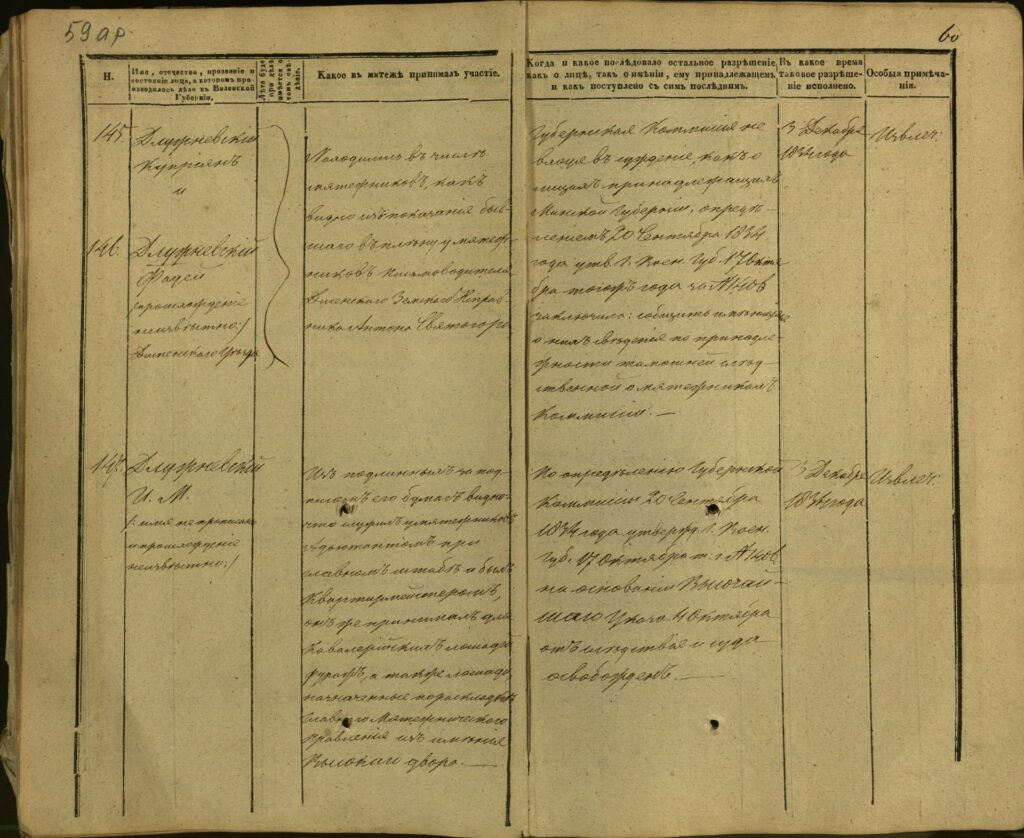 59 ар.
60
Н.
Имя, отечество, прозвание и состояние лица, о котором производилось дѣло въ Виленской Губерніи.
Какое въ мятежѣ принималъ участіе.
Когда и какое послѣдовало остальное разрѣшеніе,
какъ о лицѣ, такъ о имѣніи, ему принадлежащемъ,
и какъ поступлено съ симъ послѣднимъ.
Въ какое время
таковое разрѣше-
ніе исполнено.
Особыя примѣча-
нія.
145.
Длужневскій
Купріянъ
и
146.
Длужневскій
Фадей
/:происхожденіе
неизвѣстно:/
Виленскаго Уѣзда
Находились въ числѣ
мятежниковъ, какъ
видно изъ показанія быв-
шаго въ плѣну у мятеж-
никовъ письмоводителя
Виленскаго Земскаго Исправ-
ника Антона Святогора
Губернская Коммисія не
входя въ сужденіе, какъ о
лицахъ принадлежащихъ
Минской Губерніи, опредѣ-
леніемъ 20 Сентября 1834
года утв. Г. Воен. Губ. 17 Октя-
бря тогожъ года за №
заключила: сообщить имѣющіяся
о нихъ свѣденія по принадле-
жности тамошней слѣд-
ственной о мятежникахъ
Коммисіи. —
3 Декабря
1834 года
Извлеч.
147.
Длужневскій
И. М.
/: имя не прописано
и происхожденіе
неизвѣстно:/
Изъ подлинныхъ за под-
писомъ его бумагъ видно:
что служилъ у мятежниковъ
Адъютантомъ при
главномъ штабѣ и былъ
Квартирмейстеромъ,
онъ же принималъ для
Кавалерійскихъ лошадей
фуражъ, а также лошадей,
назначенные по раскладкѣ
Главнаго Мятежническаго
Правленія изъ имѣнія
Высокаго двора. —
По опредѣленію Губернской
Коммисіи 20 Сентября
1834 года утвержд. Г. Воен.
Губ. 17 Октября т. г. №
на основаніи Высочай-
шаго Указа 4 Октября
отъ слѣдствія и суда
освобожденъ. —
3 Декабря
1834 года
Извлеч.